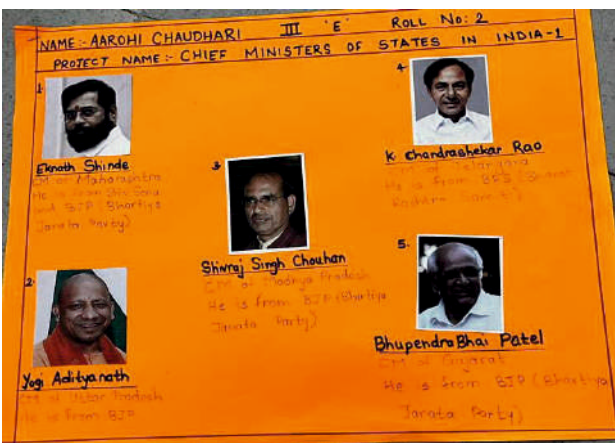 NAME:- AAROHI CHAUDHARI III 'E' ROLL NO: 2
PROJECT NAME:- CHIEF MINISTERS OF STATES IN INDIA-1
1.
Eknath Shinde
CM of Maharashtra
He is from Shiv Sena
and BJP (Bhartiya
Janata Party)
2.
Yogi Adityanath
CM of Uttar Pradesh
He is from BJP
3.
Shivraj Singh Chouhan
CM of Madhya Pradesh
He is from BJP (Bhartiya
Janata Party)
4.
K Chandrashekar Rao
CM of Telangana
He is from BRS (Bharat
5.
Bhupendra Bhai Patel
CM of Gujarat
He is from BJP (Bhartiya
Janata Party)